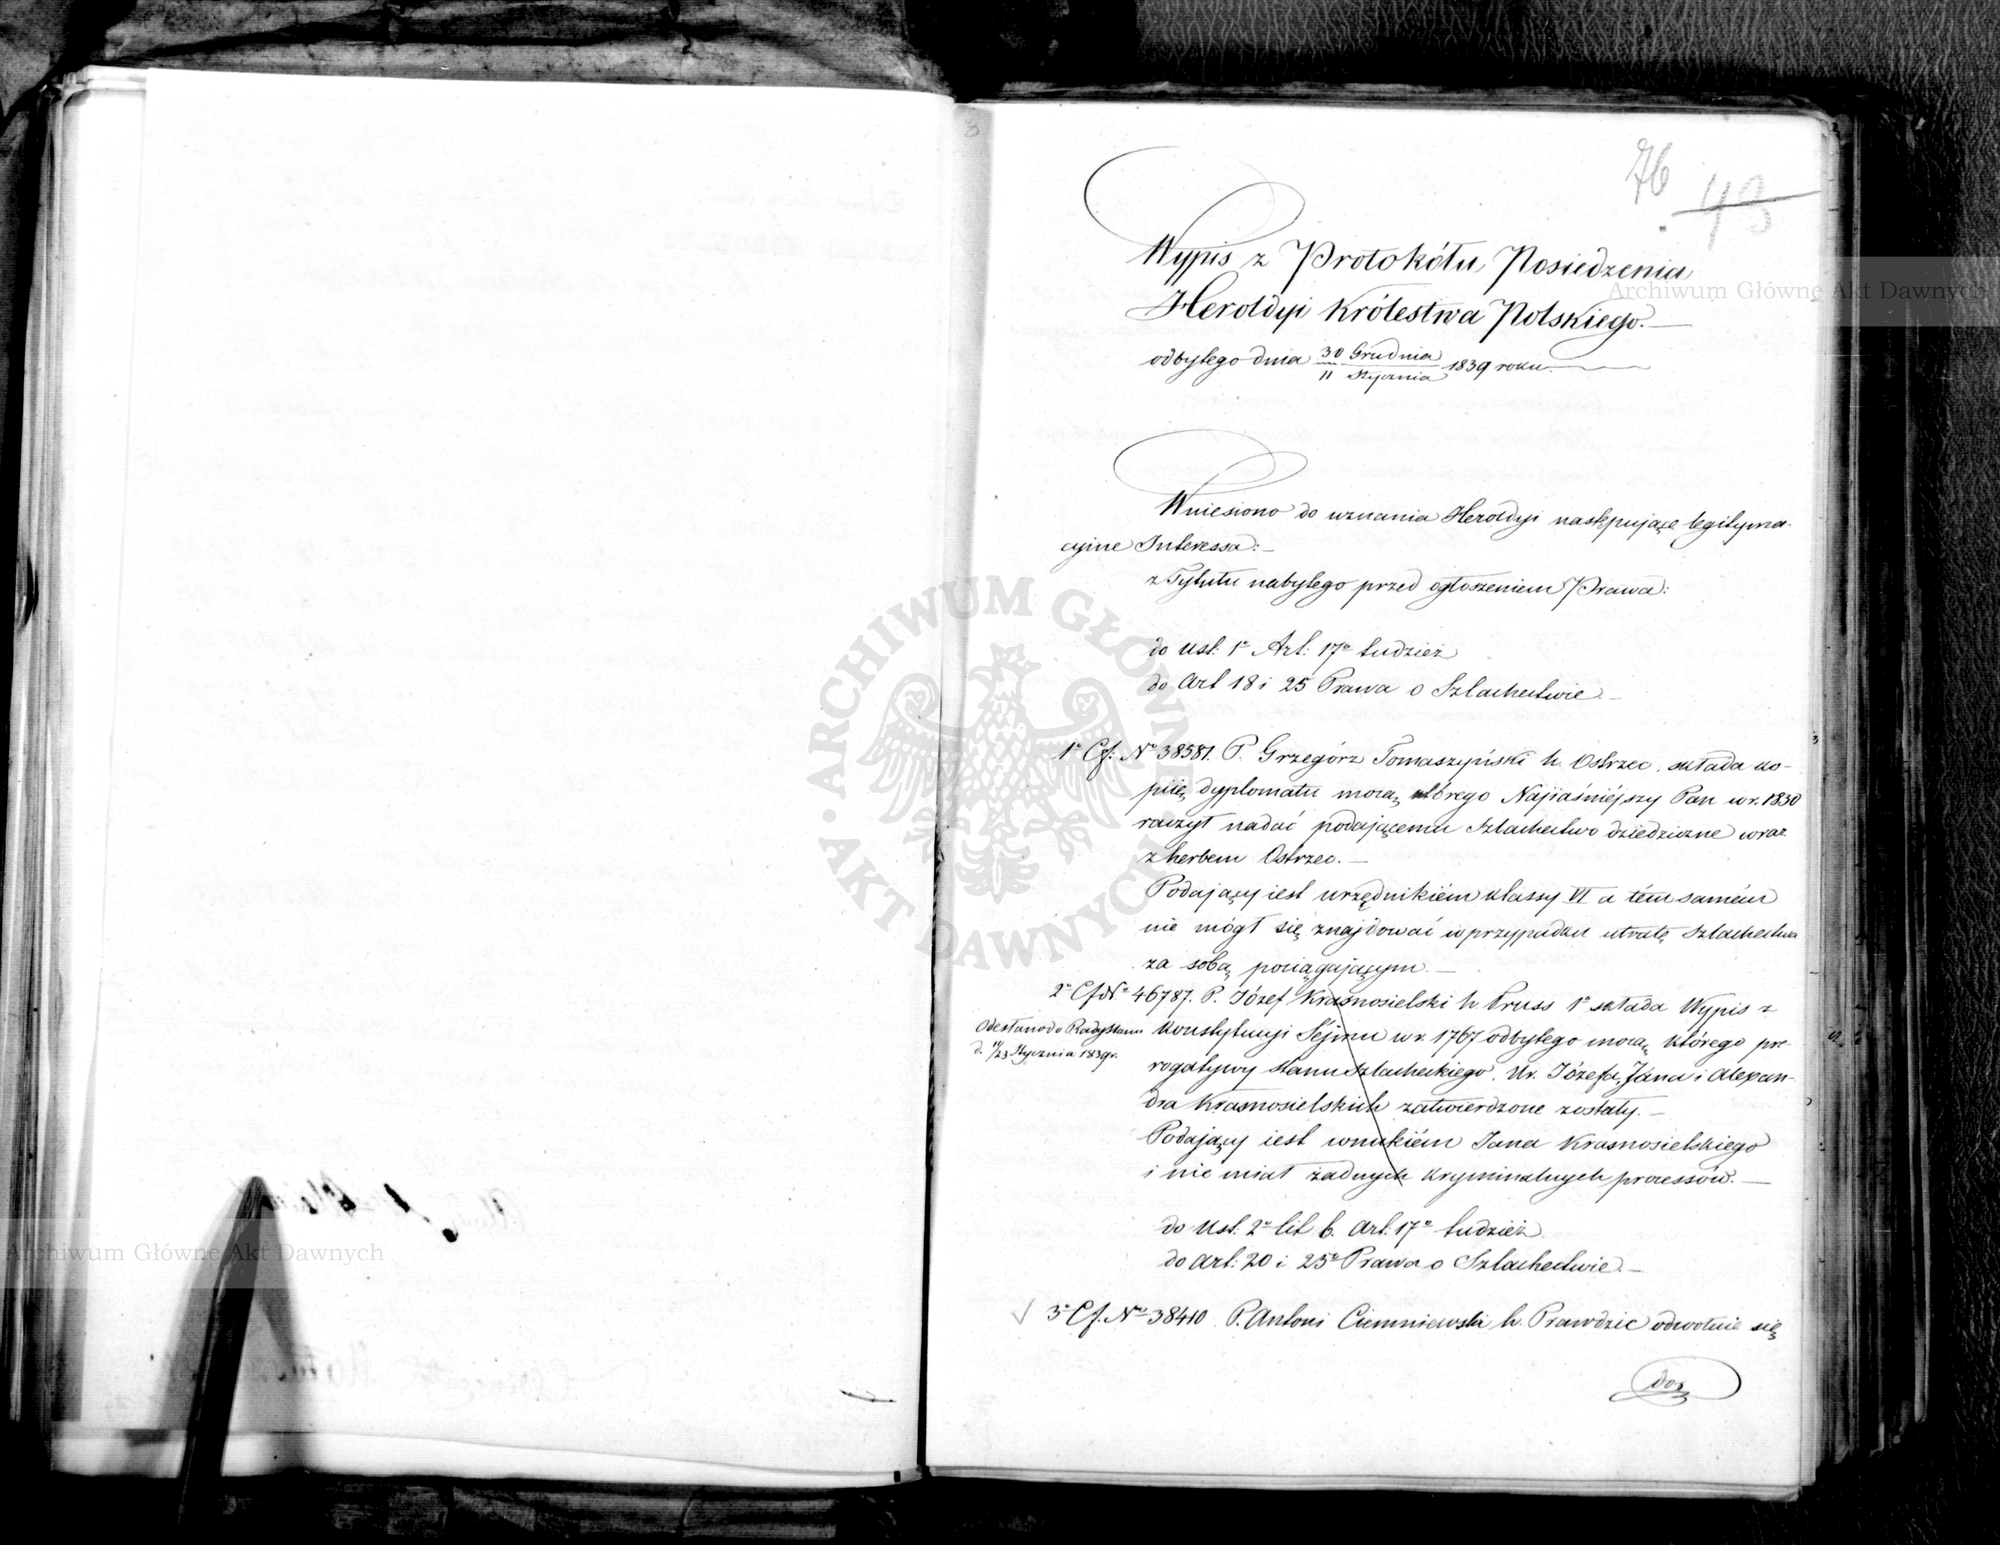 76
43
Wypis z Protokółu Posiedzenia
Heroldyi Królestwa Polskiego.
odbytego dnia 30 Grudnia / 11 Stycznia 1839 roku.
Wniesiono do uznania Heroldyi następujące legityma-
cyine Interessa:
z Tytułu nabytego przed ogłoszeniem Prawa:
do Ust: 1º Art: 17º tudzież
do Art 18 i 25 Prawa o Szlachectwie.
1º Cf: Nº 38581. P. Grzegórz Tomaszyński h. Ostrzec. składa ko-
piię dyplomatu mocą którego Najiaśniejszy Pan w r. 1830
raczył nadać podającemu Szlachectwo dziedziczne wraz
z herbem Ostrzec.
Podający iest urzędnikiém klassy VI a tém samém
nie mógł się znajdować w przypadku utratę Szlachectwa
za sobą pociągającym.
2º Cf Nº 46787. P. Józef Krasnosielski h. Pruss 1º składa Wypis z
Odesłano do Rady Stanu
d. 11/23 Stycznia 1839 r.
Konstytucyi Séjmu w r. 1767 odbytego mocą którego pre-
rogatywy stanu Szlacheckiego. Ur. Józefa, Jana i Alexan-
dra Krasnosielskich zatwierdzone zostały.
Podający iest wnukiém Jana Krasnosielskiego
i nie miał żadnych kryminalnych processów.
do Ust. 2º lit b. Art: 17º tudzież
do Art: 20 i 25º Prawa o Szlachectwie.
3º Cf. Nº 38410 P. Antoni Ciemniewski h. Prawdzic odwołuie się
do
Archiwum Główne Akt Dawnych
Archiwum Główne Akt Dawnych
ARCHIWUM GŁÓWNE AKT DAWNYCH